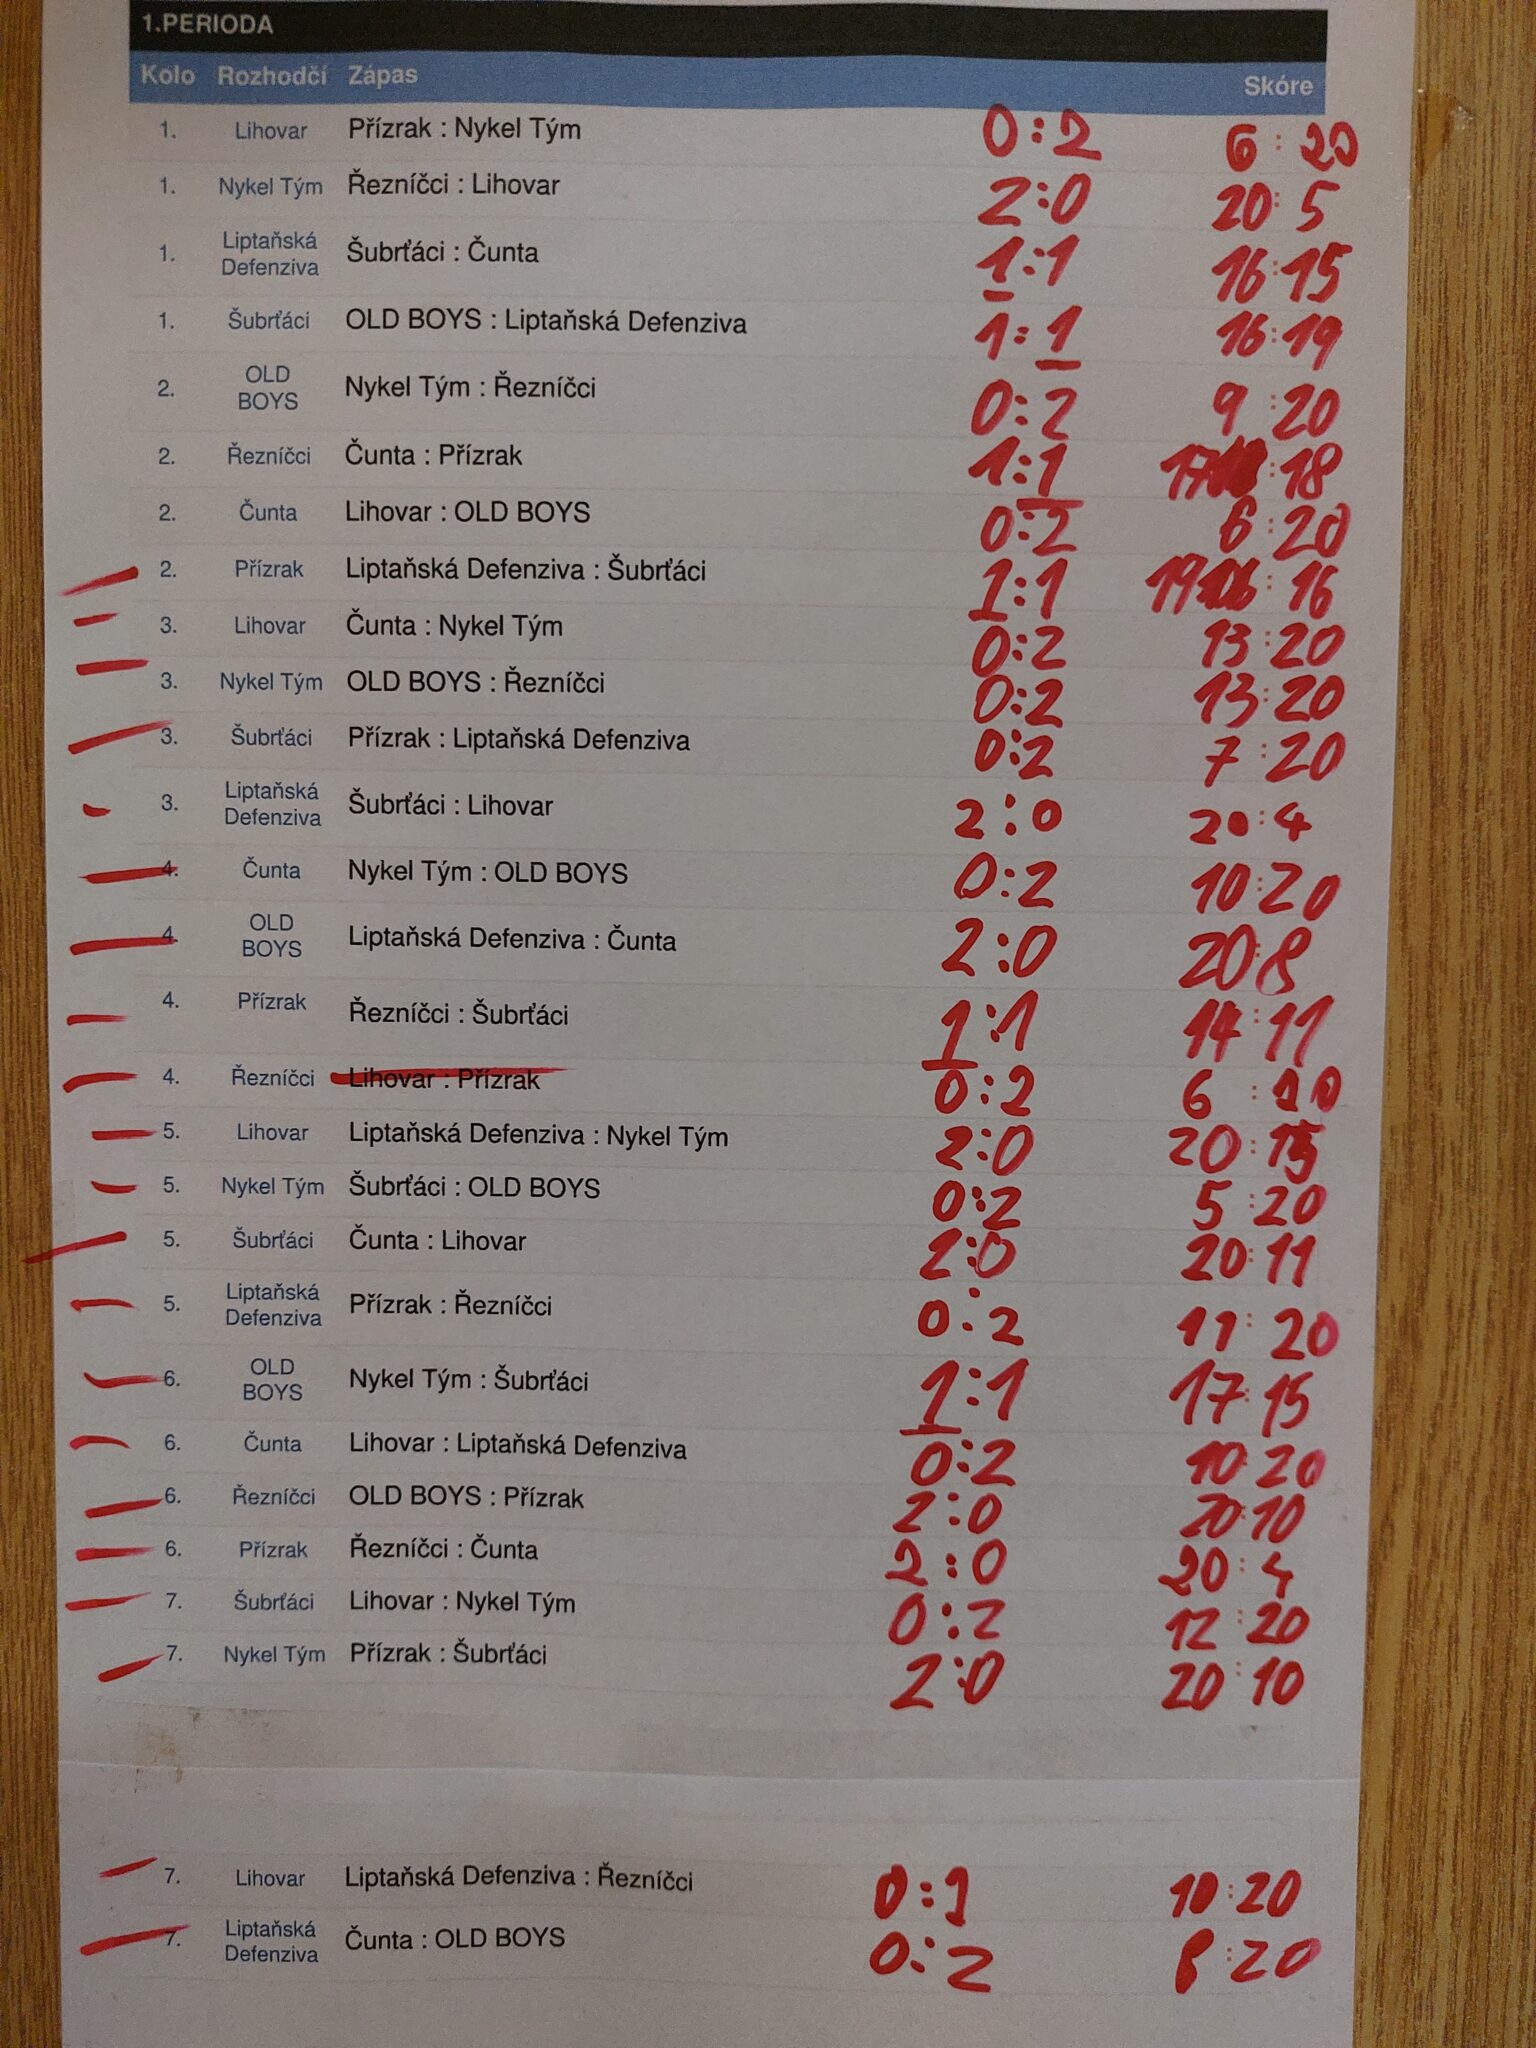 1.PERIODA
Kolo Rozhodčí Zápas Skóre
1. Lihovar Přízrak : Nykel Tým 0:2 6:20
1. Nykel Tým Řezníčci : Lihovar 2:0 20:5
1. Liptaňská Defenziva Šubrťáci : Čunta 1:1 16:15
1. Šubrťáci OLD BOYS : Liptaňská Defenziva 1:1 16:19
2. OLD BOYS Nykel Tým : Řezníčci 0:2 9:20
2. Řezníčci Čunta : Přízrak 1:1 17:18
2. Čunta Lihovar : OLD BOYS 0:2 6:20
2. Přízrak Liptaňská Defenziva : Šubrťáci 1:1 19:16
3. Lihovar Čunta : Nykel Tým 0:2 13:20
3. Nykel Tým OLD BOYS : Řezníčci 0:2 13:20
3. Šubrťáci Přízrak : Liptaňská Defenziva 0:2 7:20
3. Liptaňská Defenziva Šubrťáci : Lihovar 2:0 20:4
4. Čunta Nykel Tým : OLD BOYS 0:2 10:20
4. OLD BOYS Liptaňská Defenziva : Čunta 2:0 20:8
4. Přízrak Řezníčci : Šubrťáci 1:1 14:11
4. Řezníčci Lihovar : Přízrak 0:2 6:20
5. Lihovar Liptaňská Defenziva : Nykel Tým 2:0 20:15
5. Nykel Tým Šubrťáci : OLD BOYS 0:2 5:20
5. Šubrťáci Čunta : Lihovar 2:0 20:11
5. Liptaňská Defenziva Přízrak : Řezníčci 0:2 11:20
6. OLD BOYS Nykel Tým : Šubrťáci 1:1 17:15
6. Čunta Lihovar : Liptaňská Defenziva 0:2 10:20
6. Řezníčci OLD BOYS : Přízrak 2:0 20:10
6. Přízrak Řezníčci : Čunta 2:0 20:4
7. Šubrťáci Lihovar : Nykel Tým 0:2 12:20
7. Nykel Tým Přízrak : Šubrťáci 2:0 20:10
7. Lihovar Liptaňská Defenziva : Řezníčci 0:2 10:20
7. Liptaňská Defenziva Čunta : OLD BOYS 0:2 8:20